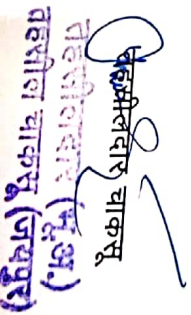 तहसीलदार चाकसू
तहसीलदार (भू.अ.)
तहसील चाकसू (जयपुर)